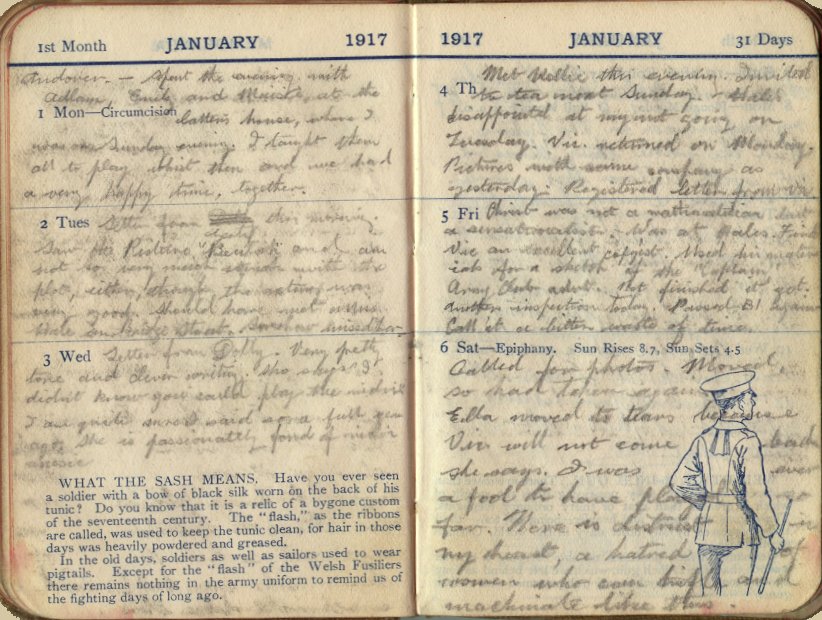 1st Month JANUARY 1917
Andover. — Spent the evening with
Adlam, and at the
1 Mon—Circumcision latter's house, where I
was on Sunday evening. I taught them
all to play whist then and we had
a very happy time, together.
2 Tues Letter from this morning.
Saw the Picture and am
not so very much struck with the
plot, either, though the acting was
very good. Should have met a Miss
Street. Somehow missed her.
3 Wed Letter from Dolly. Very pretty
tone and clever writing. She says "I
didn't know you could play the
I am quite sure I said so a full year
ago. She is passionately fond of
music
WHAT THE SASH MEANS. Have you ever seen
a soldier with a bow of black silk worn on the back of his
tunic? Do you know that it is a relic of a bygone custom
of the seventeenth century. The "flash," as the ribbons
are called, was used to keep the tunic clean, for hair in those
days was heavily powdered and greased.
In the old days, soldiers as well as sailors used to wear
pigtails. Except for the "flash" of the Welsh Fusiliers
there remains nothing in the army uniform to remind us of
the fighting days of long ago.
1917 JANUARY 31 Days
Met Nellie this evening. Invited
4 Th to tea next Sunday.
disappointed at my not going on
Tuesday. Vic. returned on Monday.
Pictures with same company as
yesterday. Registered letter from
5 Fri Christ was not a mathematician but
a sensationalist. Was at Hales. Find
Vic an excellent copyist. Used his mater
ials for a sketch of the "Captain"
Army Club advt. Not finished it yet.
Another inspection today. Passed B1 again
Call it a bitter waste of time.
6 Sat—Epiphany. Sun Rises 8.7, Sun Sets 4.5
Called for photos.
so had taken again
Ella moved to tears because
Vic will not come
she says. I was ever
a fool to have
far. There is distrust in
my heart, a hatred of
women who can and
machinate like this.